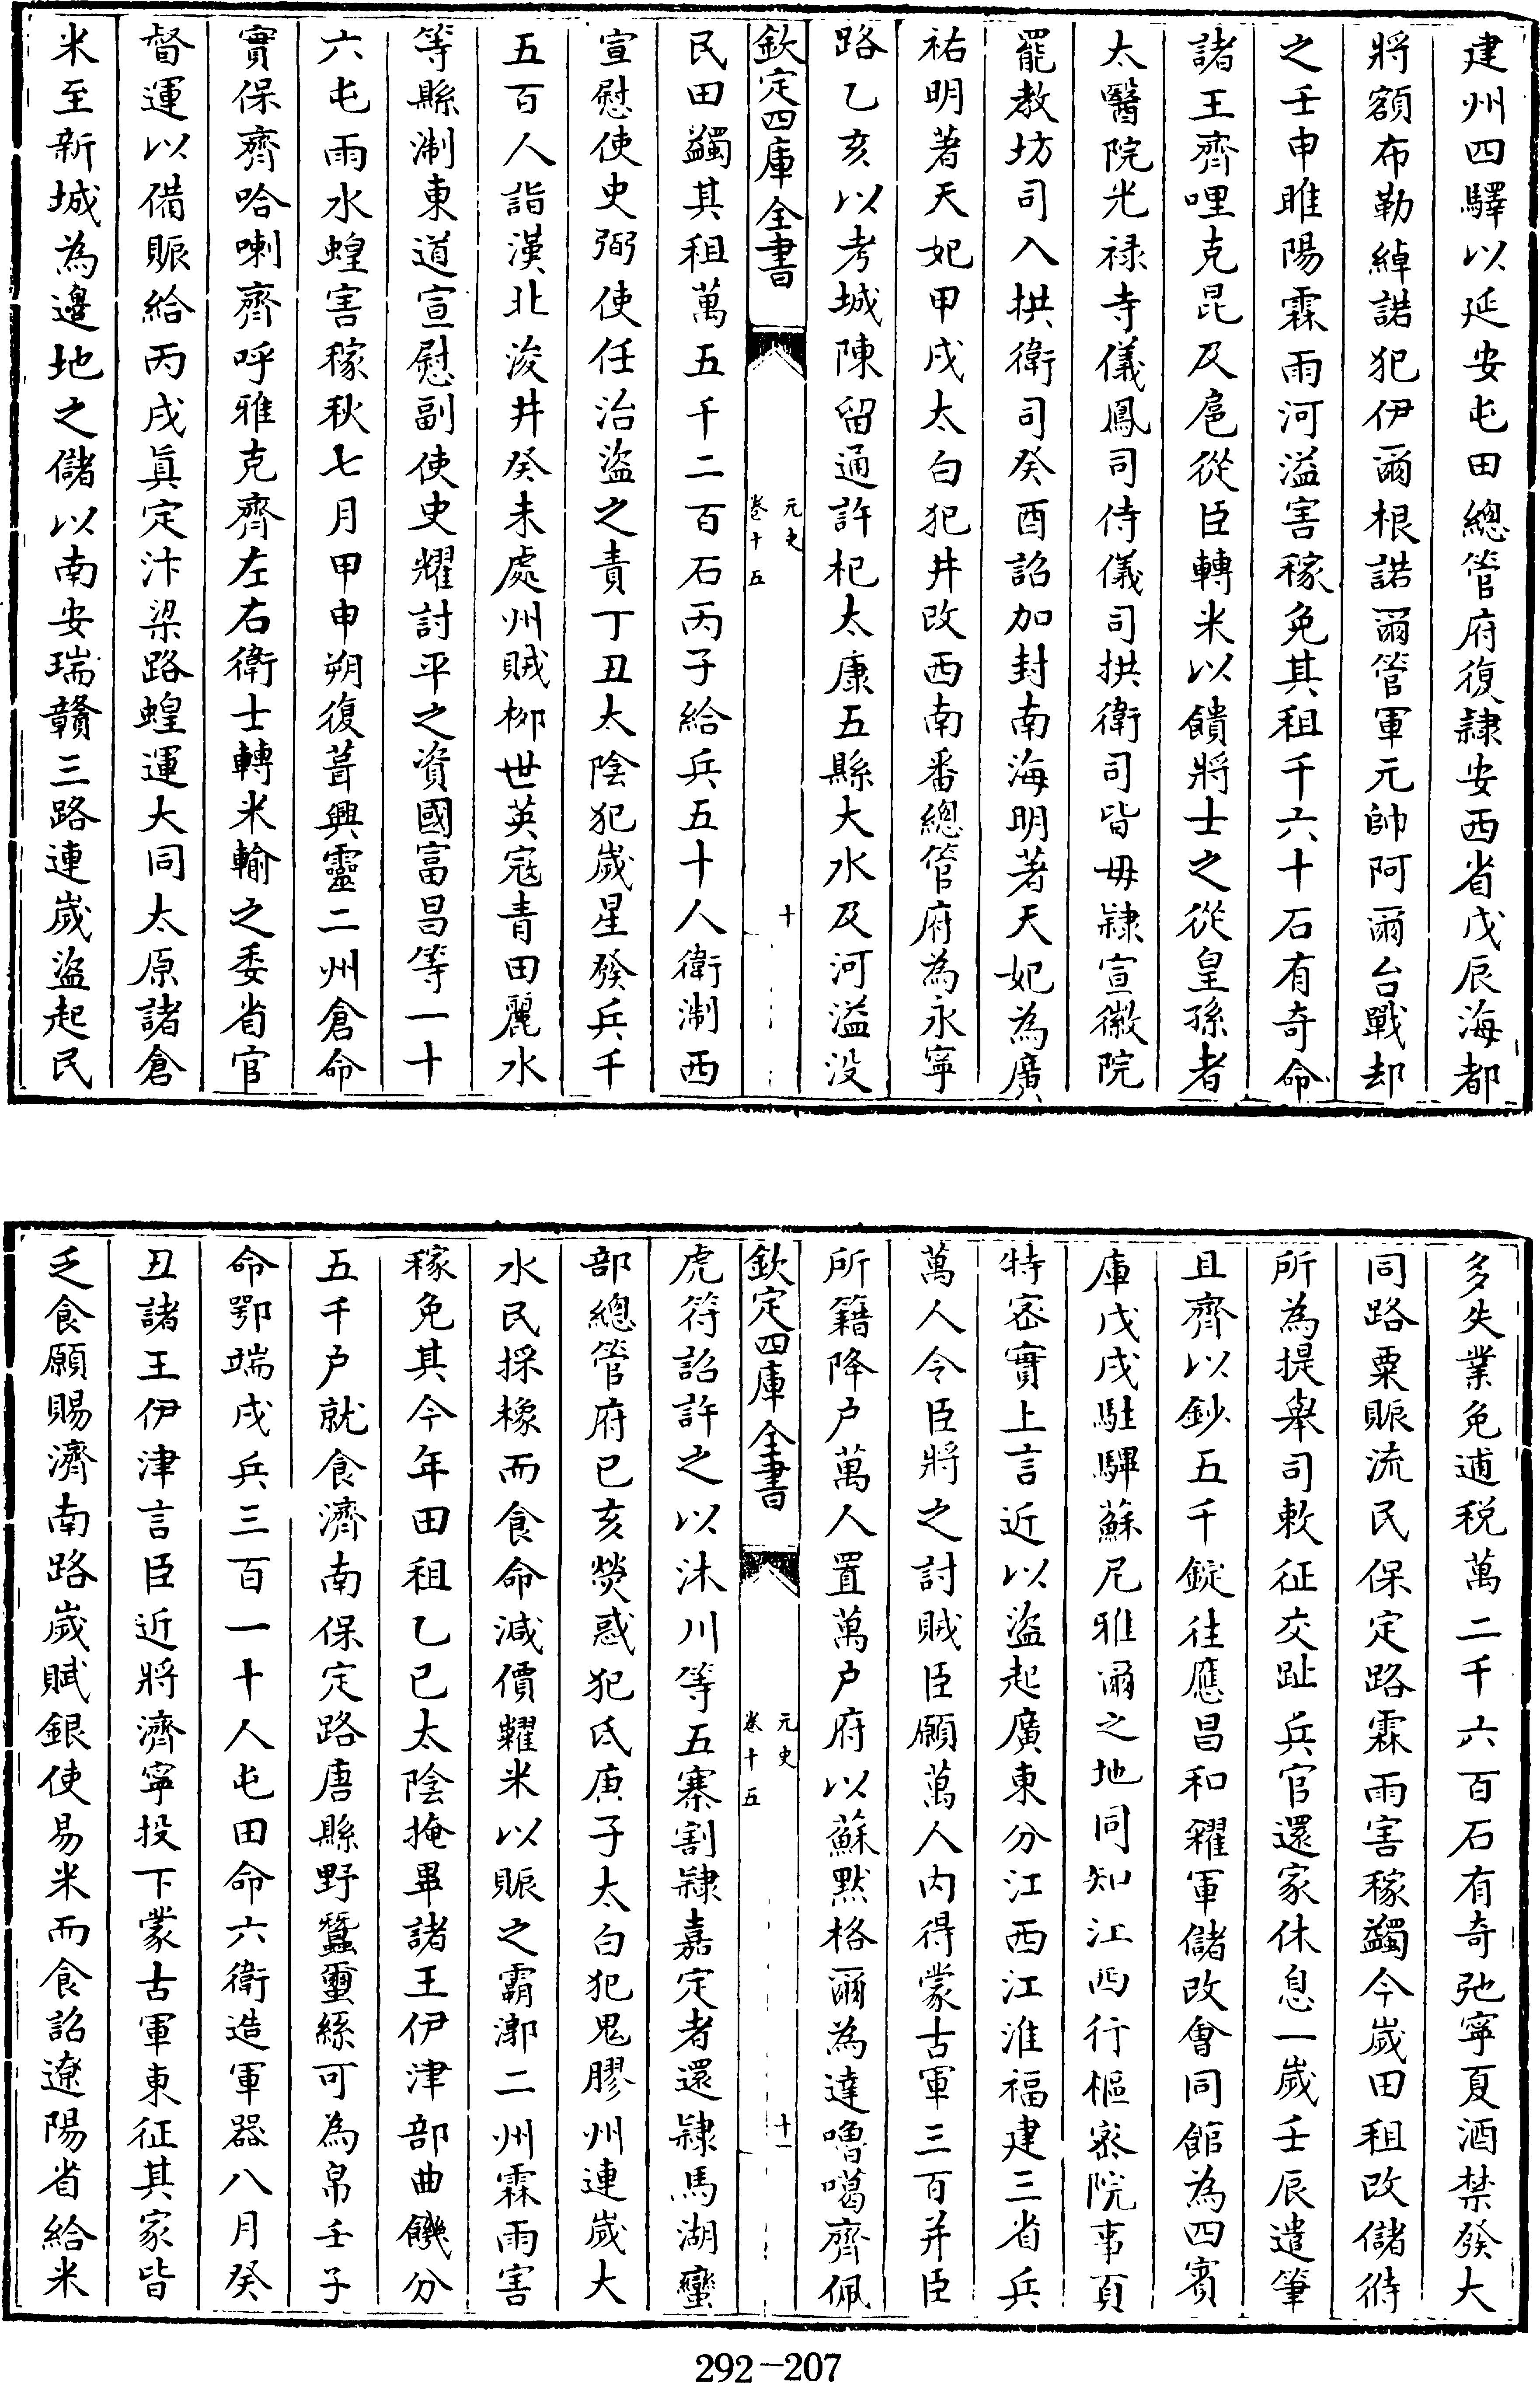 建州四驛以延安屯田總管府復隷安西省戊辰海都
將額布勒綽諾犯伊爾根諾爾管軍元帥阿爾台戰却
之壬申睢陽霖雨河溢害稼免其租千六十石有奇命
諸王齊哩克昆及扈從臣轉米以饋將士之從皇孫者
太醫院光禄寺儀鳳司侍儀司拱衛司皆毋隷宣徽院
罷教坊司入拱衛司癸酉詔加封南海明著天妃為廣
祐明著天妃甲戌太白犯井改西南番總管府為永寧
路乙亥以考城陳留通許杞太康五縣大水及河溢没
欽定四庫全書
元史
卷十五
十
民田蠲其租萬五千二百石丙子給兵五十人衛淛西
宣慰使史弼使任治盜之責丁丑太陰犯歲星發兵千
五百人詣漢北浚井癸未處州賊栁世英寇青田麗水
等縣淛東道宣慰副使史耀討平之資國富昌等一十
六屯雨水蝗害稼秋七月甲申朔復葺興靈二州倉命
實保齊哈喇齊呼雅克齊左右衛士轉米輸之委省官
督運以備賑給丙戌眞定汴梁路蝗運大同太原諸倉
米至新城為邊地之儲以南安瑞贛三路連歲盜起民
多失業免逋税萬二千六百石有奇弛寧夏酒禁發大
同路粟賑流民保定路霖雨害稼蠲今歲田租改儲偫
所為提舉司敕征交趾兵官還家休息一歲壬辰遣筆
且齊以鈔五千錠往應昌和糴軍儲改會同館為四賓
庫戊戌駐驆蘇尼雅爾之地同知江西行樞宻院事頁
特宻實上言近以盜起廣東分江西江淮福建三省兵
萬人令臣將之討賊臣願萬人内得蒙古軍三百并臣
所籍降户萬人置萬户府以蘇黙格爾為達嚕噶齊佩
欽定四庫全書
元史
卷十五
十一
虎符詔許之以沐川等五寨割隷嘉定者還隷馬湖蠻
部總管府已亥熒惑犯氐庚子太白犯鬼膠州連歲大
水民採橡而食命减價糶米以賑之霸漷二州霖雨害
稼免其今年田租乙已太陰掩畢諸王伊津部曲饑分
五千户就食濟南保定路唐縣野蠶璽絲可為帛壬子
命鄂端戍兵三百一十人屯田命六衛造軍器八月癸
丑諸王伊津言臣近將濟寧投下蒙古軍東征其家皆
乏食願賜濟南路歲賦銀使易米而食詔遼陽省給米
292-207